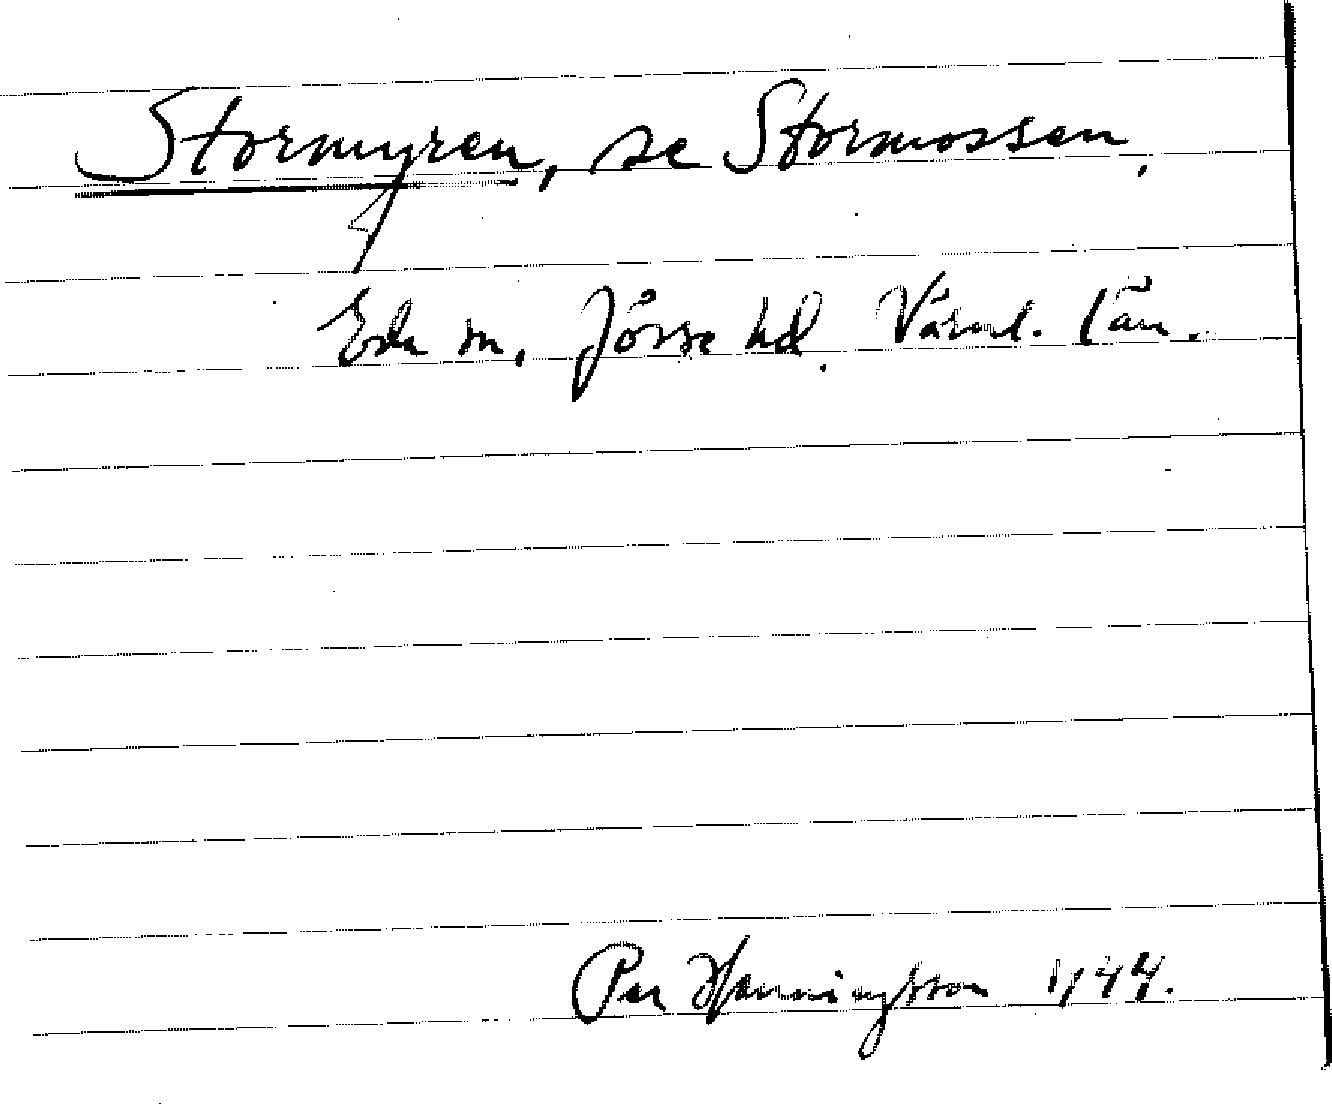 Stormyren, se Stormossen.
Eda sn. Jösse hd. Värml. län.
Per Henningsson 1944.